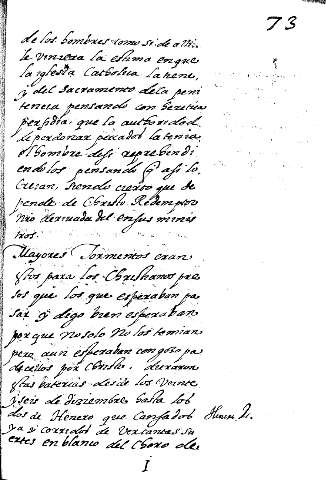 73
de los hombres como si de alli
le viniera la estima en que
la iglesia Catholica la tiene,
y del Sacramento de la peni
tencia pensando con heretica
perfidia: que la authoridad
de perdonar peccados la tenia
el hombre de si reprehendi
endolos pensando q̃ asi lo
creian, siendo cierto que de
pende de Christo Redemptor
nro derivada del en sus minis
tros.
Mayores Tormentos eran
estos para los Christianos pre
sos que los que esperaban pa
sar y digo bien esperaban
porque no solo no los temian
pero aun esperaban con goço pa
decellos por Christo. duraron
estas baterias desde los veinte
y seis de diziembre hasta los
dos de Henero que cansados
ya y corridos de ver tantas su
ertes en blanco del Choro de
I